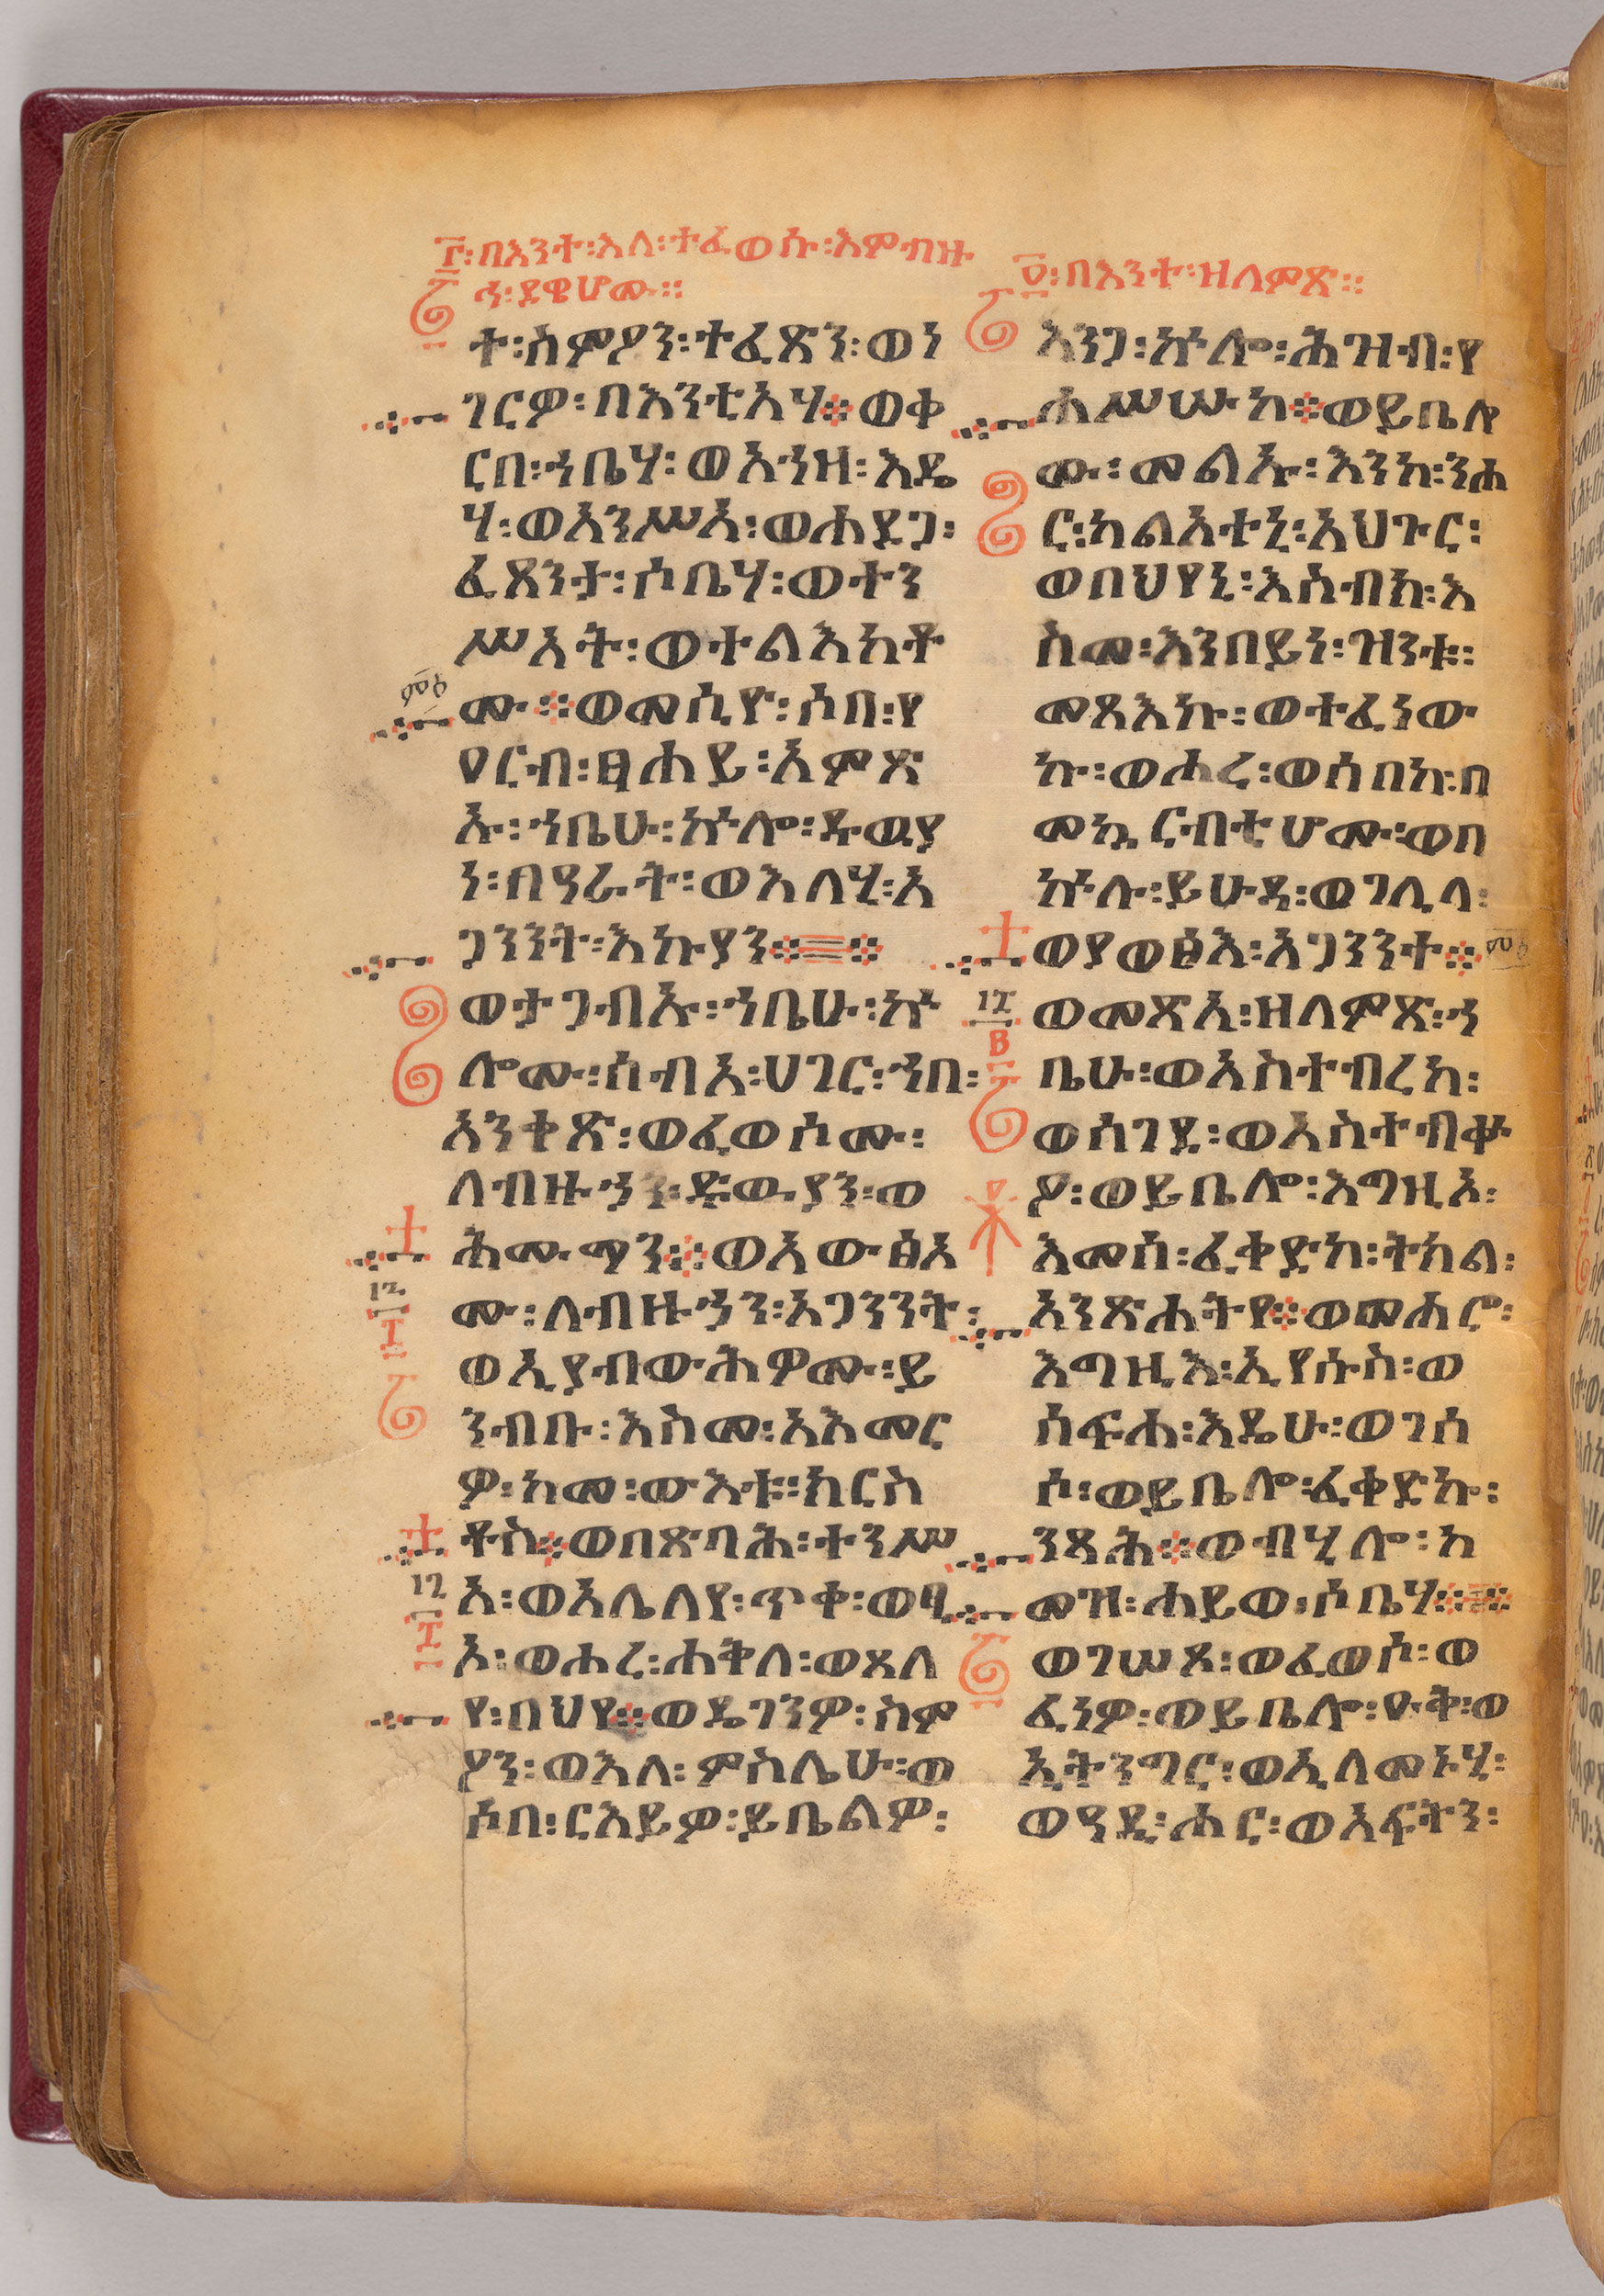 ፫፡በእንተ፡እለ፡ተፈወሱ፡እምብዙ
ኅ፡ደዌሆሙ፡፡
ተ፡ስምዖን፡ተፈጽን፡ወነ
ገርዎ፡በእንቲአሃ፨ወቀ
ርበ፡ኀቤሃ፡ወእኀዘ፡እዴ
ሃ፡ወአንሥአ፡ወሐደጋ፡
ፈጸንታ፡ሶቤሃ፡ወተን
ሥአት፡ወተልእከቶ
ሙ፨ወመሲዮ፡ሶበ፡የ
ዐርብ፡ፀሐይ፡አምጽ
ኡ፡ኀቤሁ፡ኵሎ፡ዱዉያ
ነ፡በዓራት፡ወእለሂ፡አ
ጋንንት፡እኩያን፨፨
ወታጋብኡ፡ኀቤሁ፡ኵ
ሎሙ፡ሰብአ፡ሀገር፡ኀበ፡
አንቀጽ፡ወፈወሶሙ፡
ለብዙኃን፡ድዉያን፡ወ
ሕሙማን፨ወአውፅአ
ሙ፡ለብዙኃን፡አጋንንት፡
ወኢያብውሖሙ፡ይ
ንብቡ፡እስመ፡አእመር
ዎ፡ከመ፡ውእቱ፡ክርስ
ቶስ፨ወበጽባሕ፡ተንሥ
አ፡ወአሌለየ፡ጥቀ፡ወፃ
አ፡ወሐረ፡ሐቅለ፡ወጸለ
የ፡በህየ፨ወዴገንዎ፡ስም
ዖን፡ወእለ፡ምስሌሁ፡ወ
ሶበ፡ርእይዎ፡ይቤልዎ፡
፬፡በእንተ፡ዘለምጽ፡፡
አንጋ፡ኵሎ፡ሕዝብ፡የ
ሐሥሡከ፨ወይቤሎ
ሙ፡መልኡ፡እንከ፡ንሐ
ር፡ካልእተኒ፡አህጉር፡
ወበህየኒ፡እስብክ፡እ
ስመ፡እንበይነ፡ዝንቱ፡
መጻእኩ፡ወተፈነው
ኩ፡ወሐረ፡ወሰበከ፡በ
መኳርብቲሆሙ፡ወበ
ኵሉ፡ይሁዳ፡ወገሊላ፡
ወያወፅእ፡አጋንንተ፨
ወመጽአ፡ዘለምጽ፡ኀ
ቤሁ፡ወአስተብረከ፡
ወሰገደ፡ወአስተብቍ
ዖ፡ወይቤሎ፡እግዚኦ፡
እመሰ፡ፈቀድከ፡ትክል፡
አንጽሖትየ፨ወመሐሮ፡
እግዚእ፡ኢየሱስ፡ወ
ሰፍሐ፡እዴሁ፡ወገሰ
ሶ፡ወይቤሎ፡ፈቀድኩ፡
ንጻሕ፨ወብሂሎ፡ከ
መዝ፡ሐይወ፡ሶቤሃ፨፨
ወገሠጾ፡ወፈወሶ፡ወ
ፈነዎ፡ወይቤሎ፡ዑቅ፡ወ
ኢትንግር፡ወኢለመኑሂ፡
ወዓዲ፡ሐር፡ወአፍትን፡